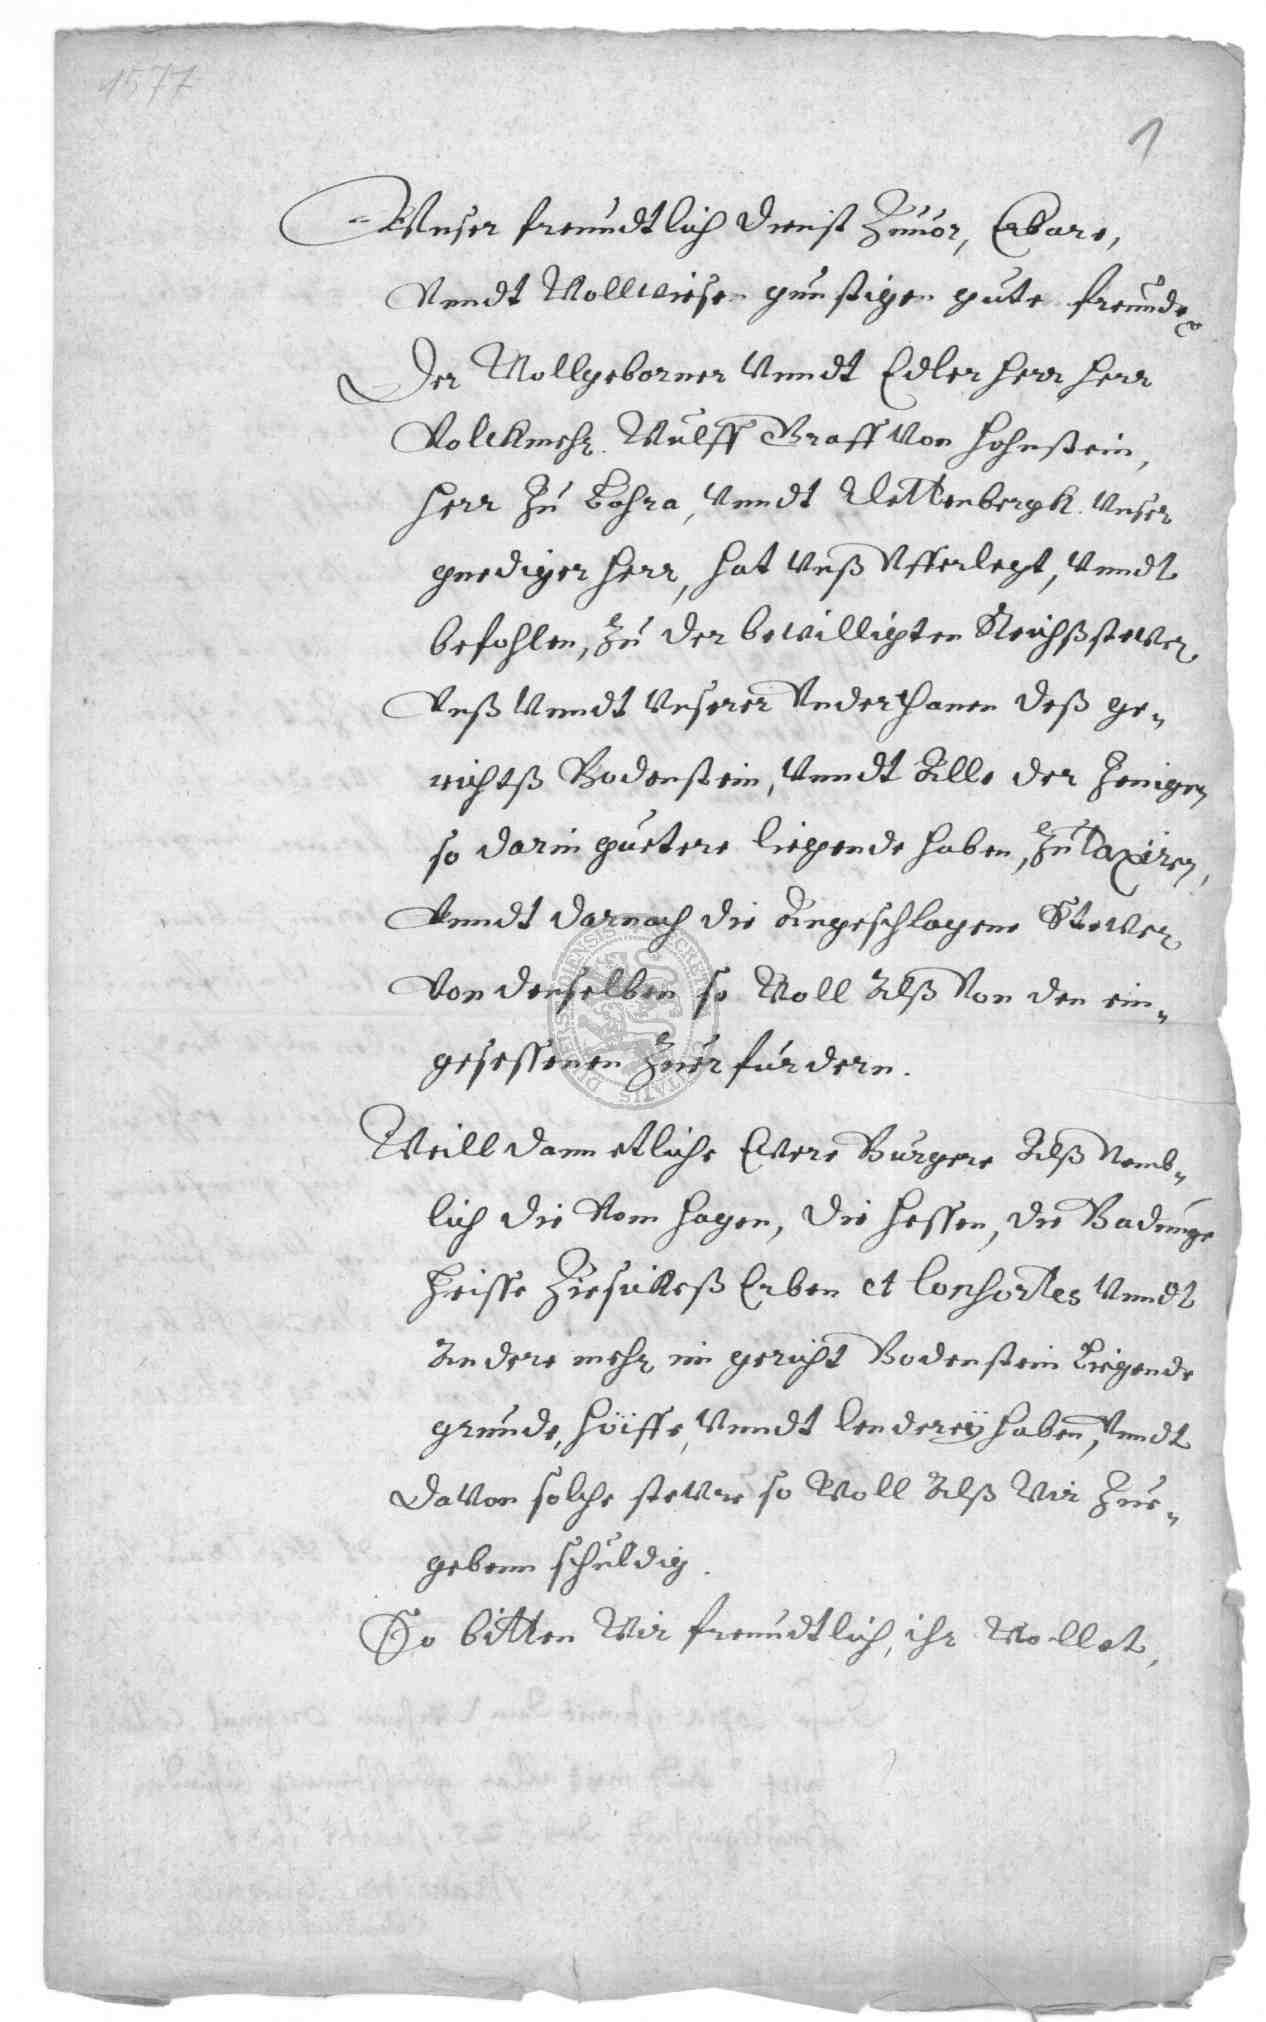 1577
1
Vnser freundtlich dienst Zuuor, Erbare,
Vnndt Wollwiese gunstigen gute freunde
Der Wollgeborner Vnndt Edler Herr Herr
Volckmehr Wulff Graff Von Hohnstein,
Herr Zu Lohra, Vnndt Clettenbergk Vnser
gnediger Herr, hat Vnß Vfferlegt, Vnndt
befohlen, Zu der bewilligten Reichßstewer
Vnß Vnndt Vnserer Vnderthanen deß ge„
richtß Bodenstein, Vnndt Alle der Jenigen
so darin guetere liegende haben, Zu taxiren,
Vnndt darnach die Angeschlagene Stewer
Von denselben so Woll Alß Von den ein„
gesessenen Zuerfurdern.
Weill dann etliche Ewere Burgere Alß Nemb„
lich die Vom Hagen, die Hessen, die Badunge
Heisse Ziesickeß Erben et Consortes Vnndt
Andere mehr im gericht Bodenstein Liegende
grunde, Höiffe, Vnndt lenderey haben, Vnndt
daVon solche stewre so Woll Alß Wir Zue„
gebenn schuldig.
So bitten Wir freundtlich, ihr Wollet,